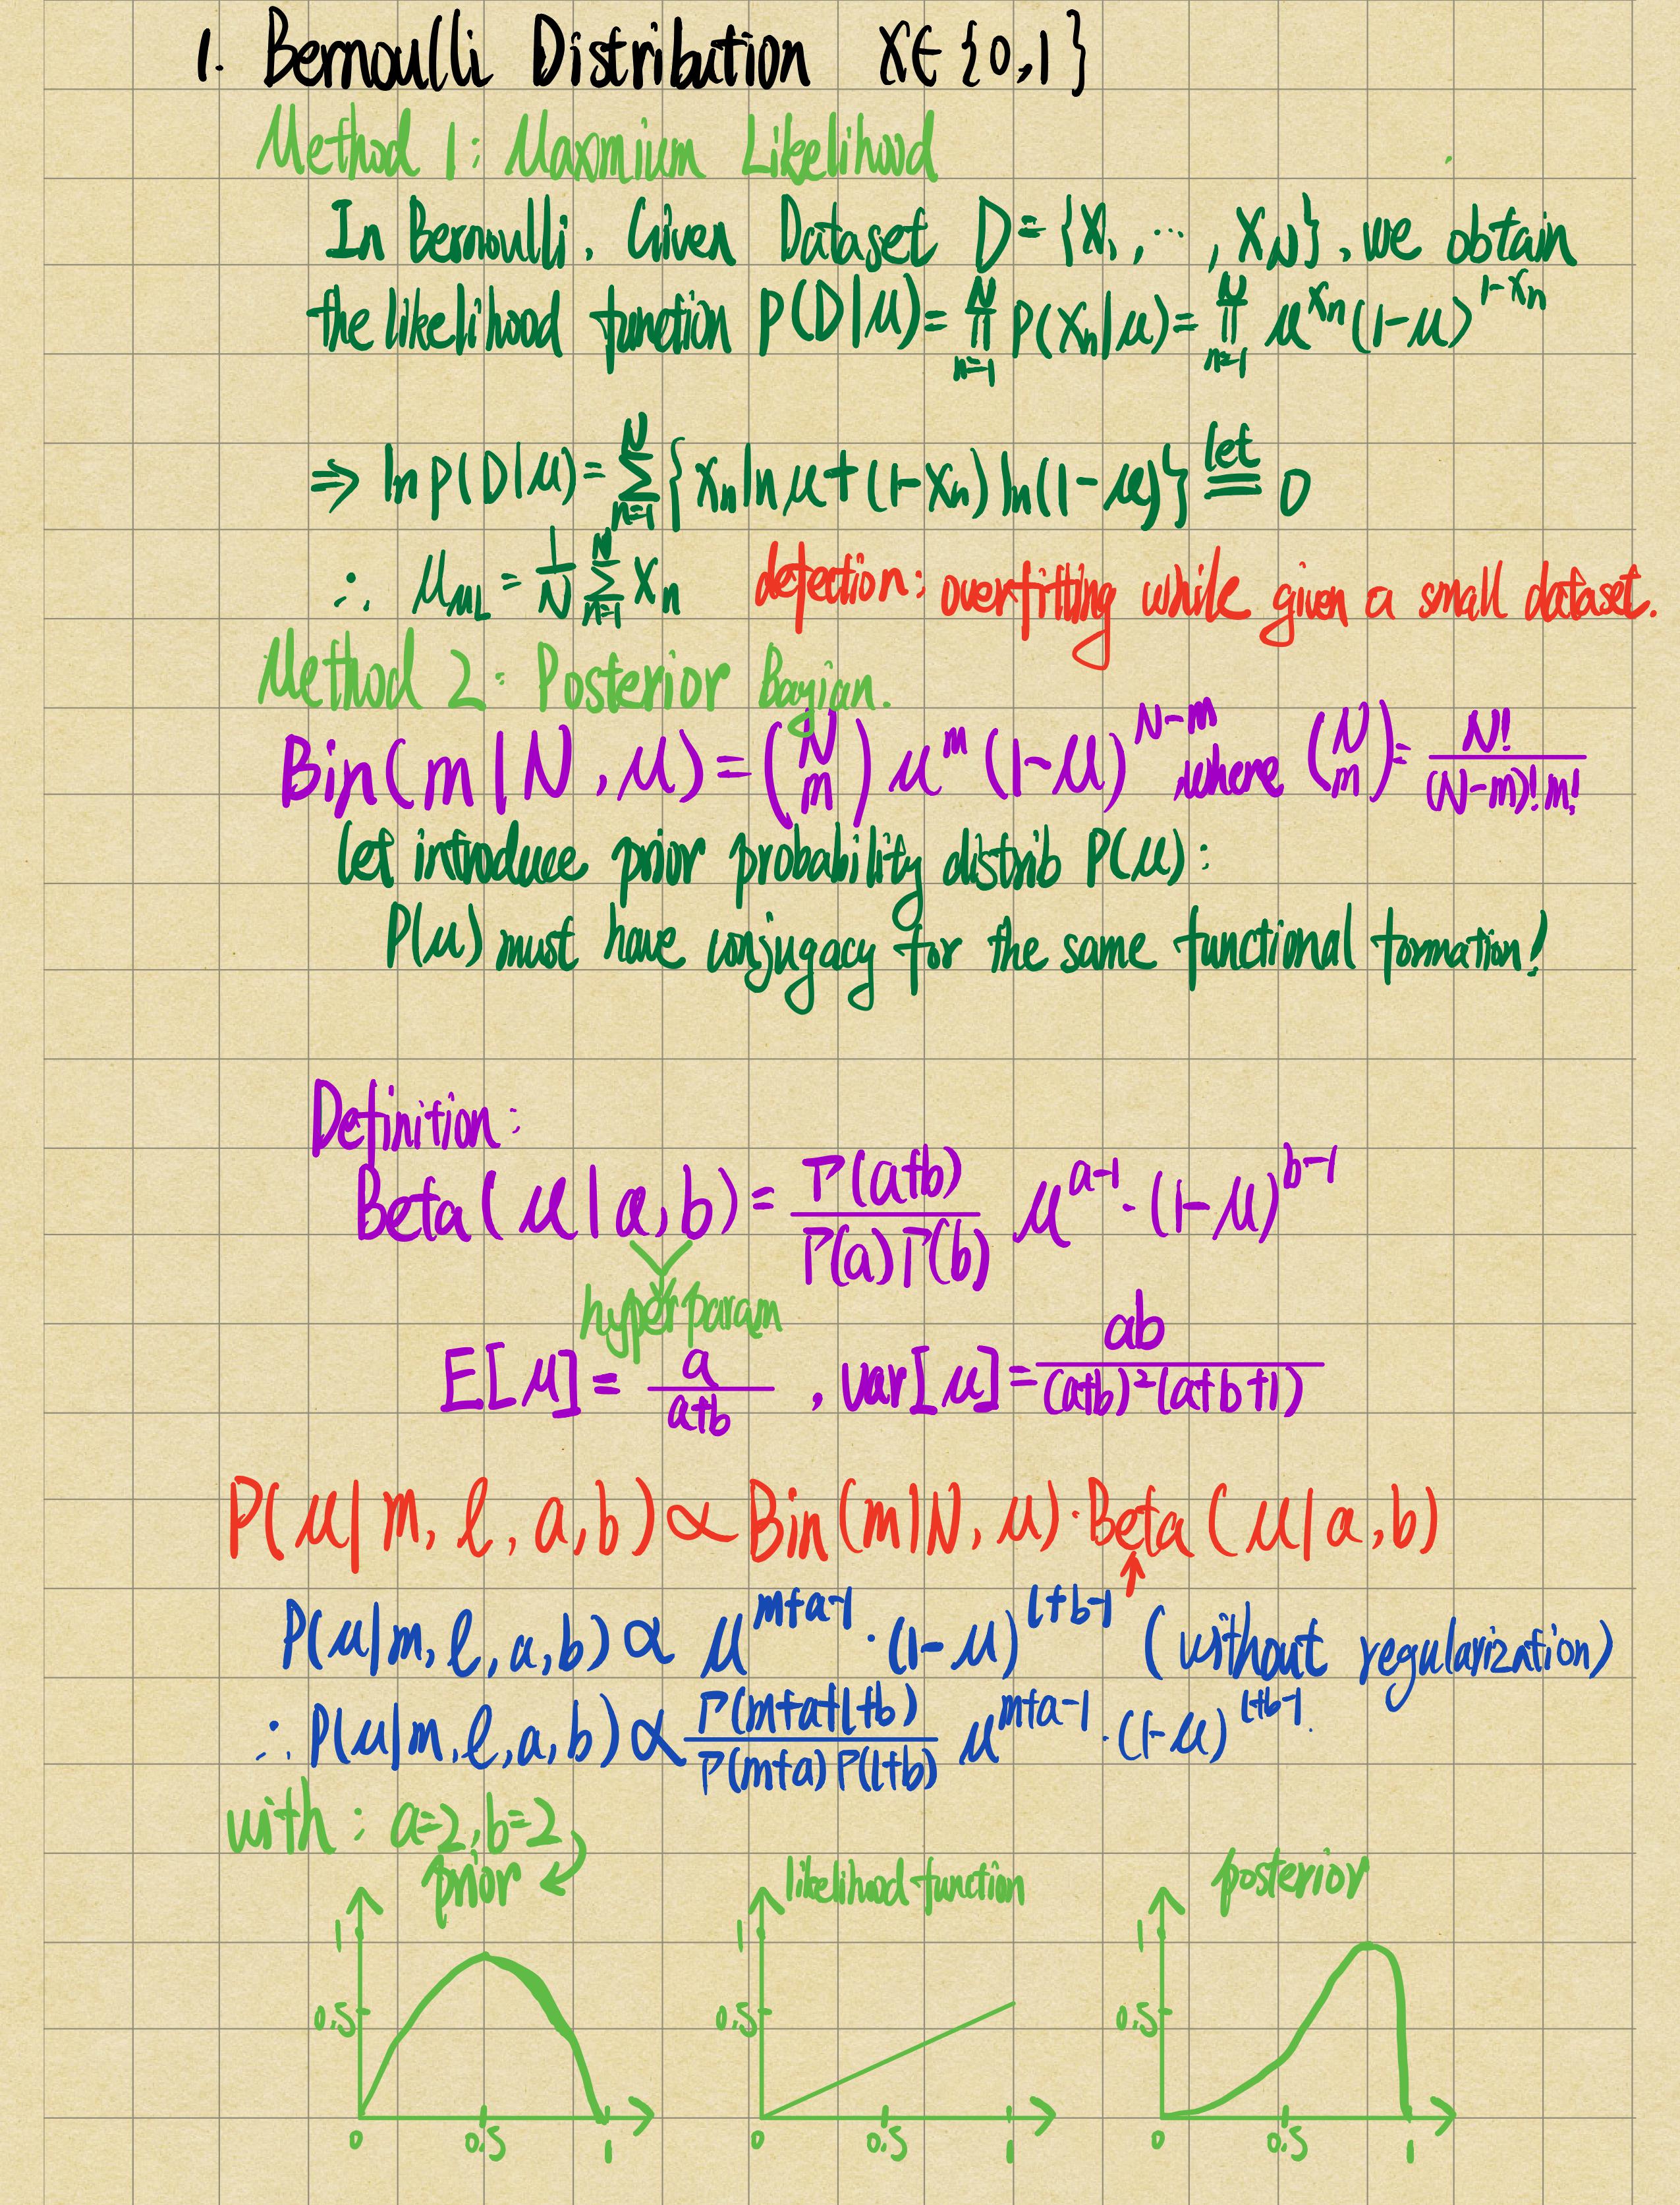 1. Bernoulli Distribution X∈{0,1}
Method 1: Maxmium Likelihood
In Bernoulli, Given Dataset D={X₁, ⋯, X_N}, we obtain
the likelihood function P(D|μ)= ∏_{n=1}^{N} P(Xₙ|μ)= ∏_{n=1}^{N} μ^{Xₙ}(1-μ)^{1-Xₙ}
⇒ ln P(D|μ)= ∑_{n=1}^{N} {Xₙ ln μ + (1-Xₙ) ln(1-μ)} ≝(let) 0
∴ μ_{ML} = 1/N ∑_{n=1}^{N} Xₙ defection: overfitting while given a small dataset.
Method 2: Posterior Bayian.
Bin(m|N,μ)= (N m) μ^m (1-μ)^{N-m} where (N m)= N!/((N-m)!m!)
let introduce prior probability distrib P(μ):
P(μ) must have conjugacy for the same functional formation!
Definition:
Beta(μ|a,b)= Γ(a+b)/(Γ(a)Γ(b)) μ^{a-1}·(1-μ)^{b-1}
hyperparam
E[μ]= a/(a+b) , var[μ]= ab/((a+b)²(a+b+1))
P(μ|m,l,a,b)∝Bin(m|N,μ)·Beta(μ|a,b)
↑
P(μ|m,l,a,b)∝ μ^{m+a-1}·(1-μ)^{l+b-1} (without regularization)
∴ P(μ|m,l,a,b)∝ Γ(m+a+l+b)/(Γ(m+a)Γ(l+b)) μ^{m+a-1}·(1-μ)^{l+b-1}.
with: a=2,b=2
prior
likelihood function
posterior
1
1
1
0.5
0.5
0.5
0 0.5 1
0 0.5 1
0 0.5 1